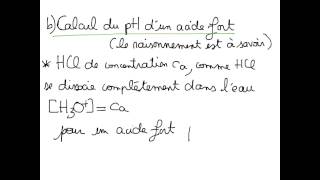 b) Calcul du pH d'un acide fort
(le raisonnement est à savoir)
* HCl de concentration Ca, comme HCl
se dissocie complètement dans l'eau
[H₃O⁺] = Ca
pour un acide fort |